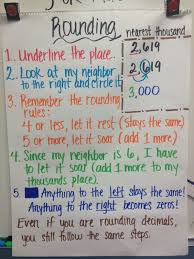 Rounding
nearest thousand
1. Underline the place.
2,619
2. Look at my neighbor
to the right and circle it
2,619
3. Remember the rounding
rules:
3,000
4 or less, let it rest (stays the same)
5 or more, let it soar (add 1 more)
4. Since my neighbor is 6, I have
to let it soar (add 1 more to my
thousands place).
5. Anything to the left stays the same!
Anything to the right becomes zeros!
Even if you are rounding decimals,
you still follow the same steps.